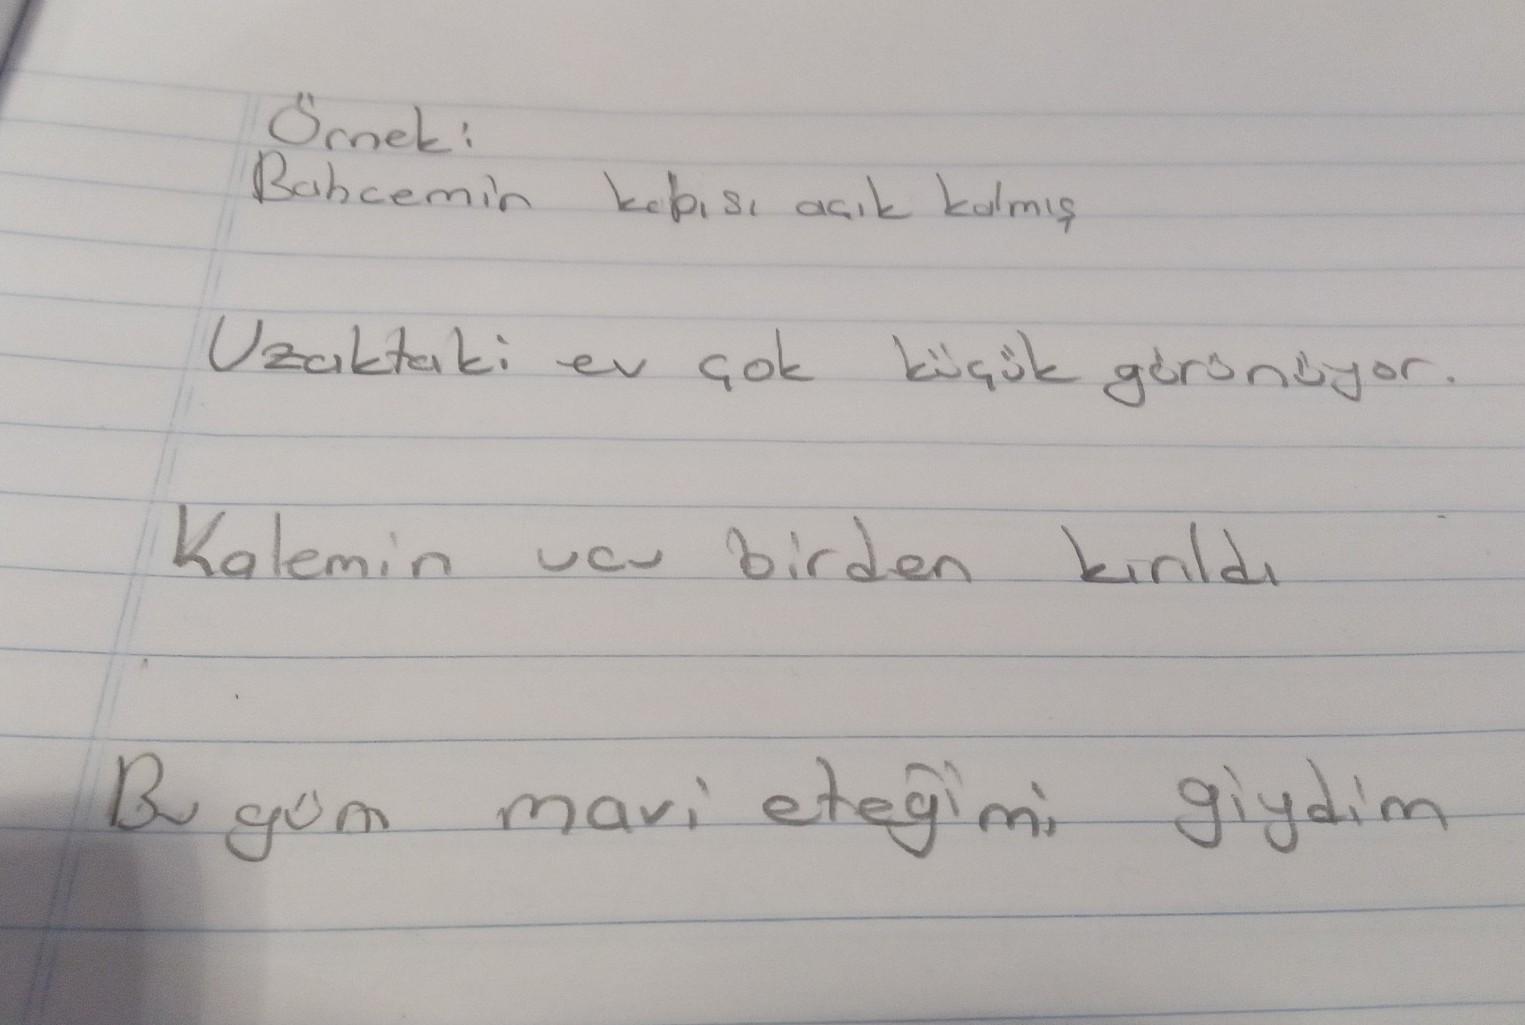 Örnek:
Bahcemin kabısı acık kalmış
Uzaktaki ev çok küçük görünüyor.
Kalemin ucu birden kırıldı
Bu güm mavi eteğimi giydim